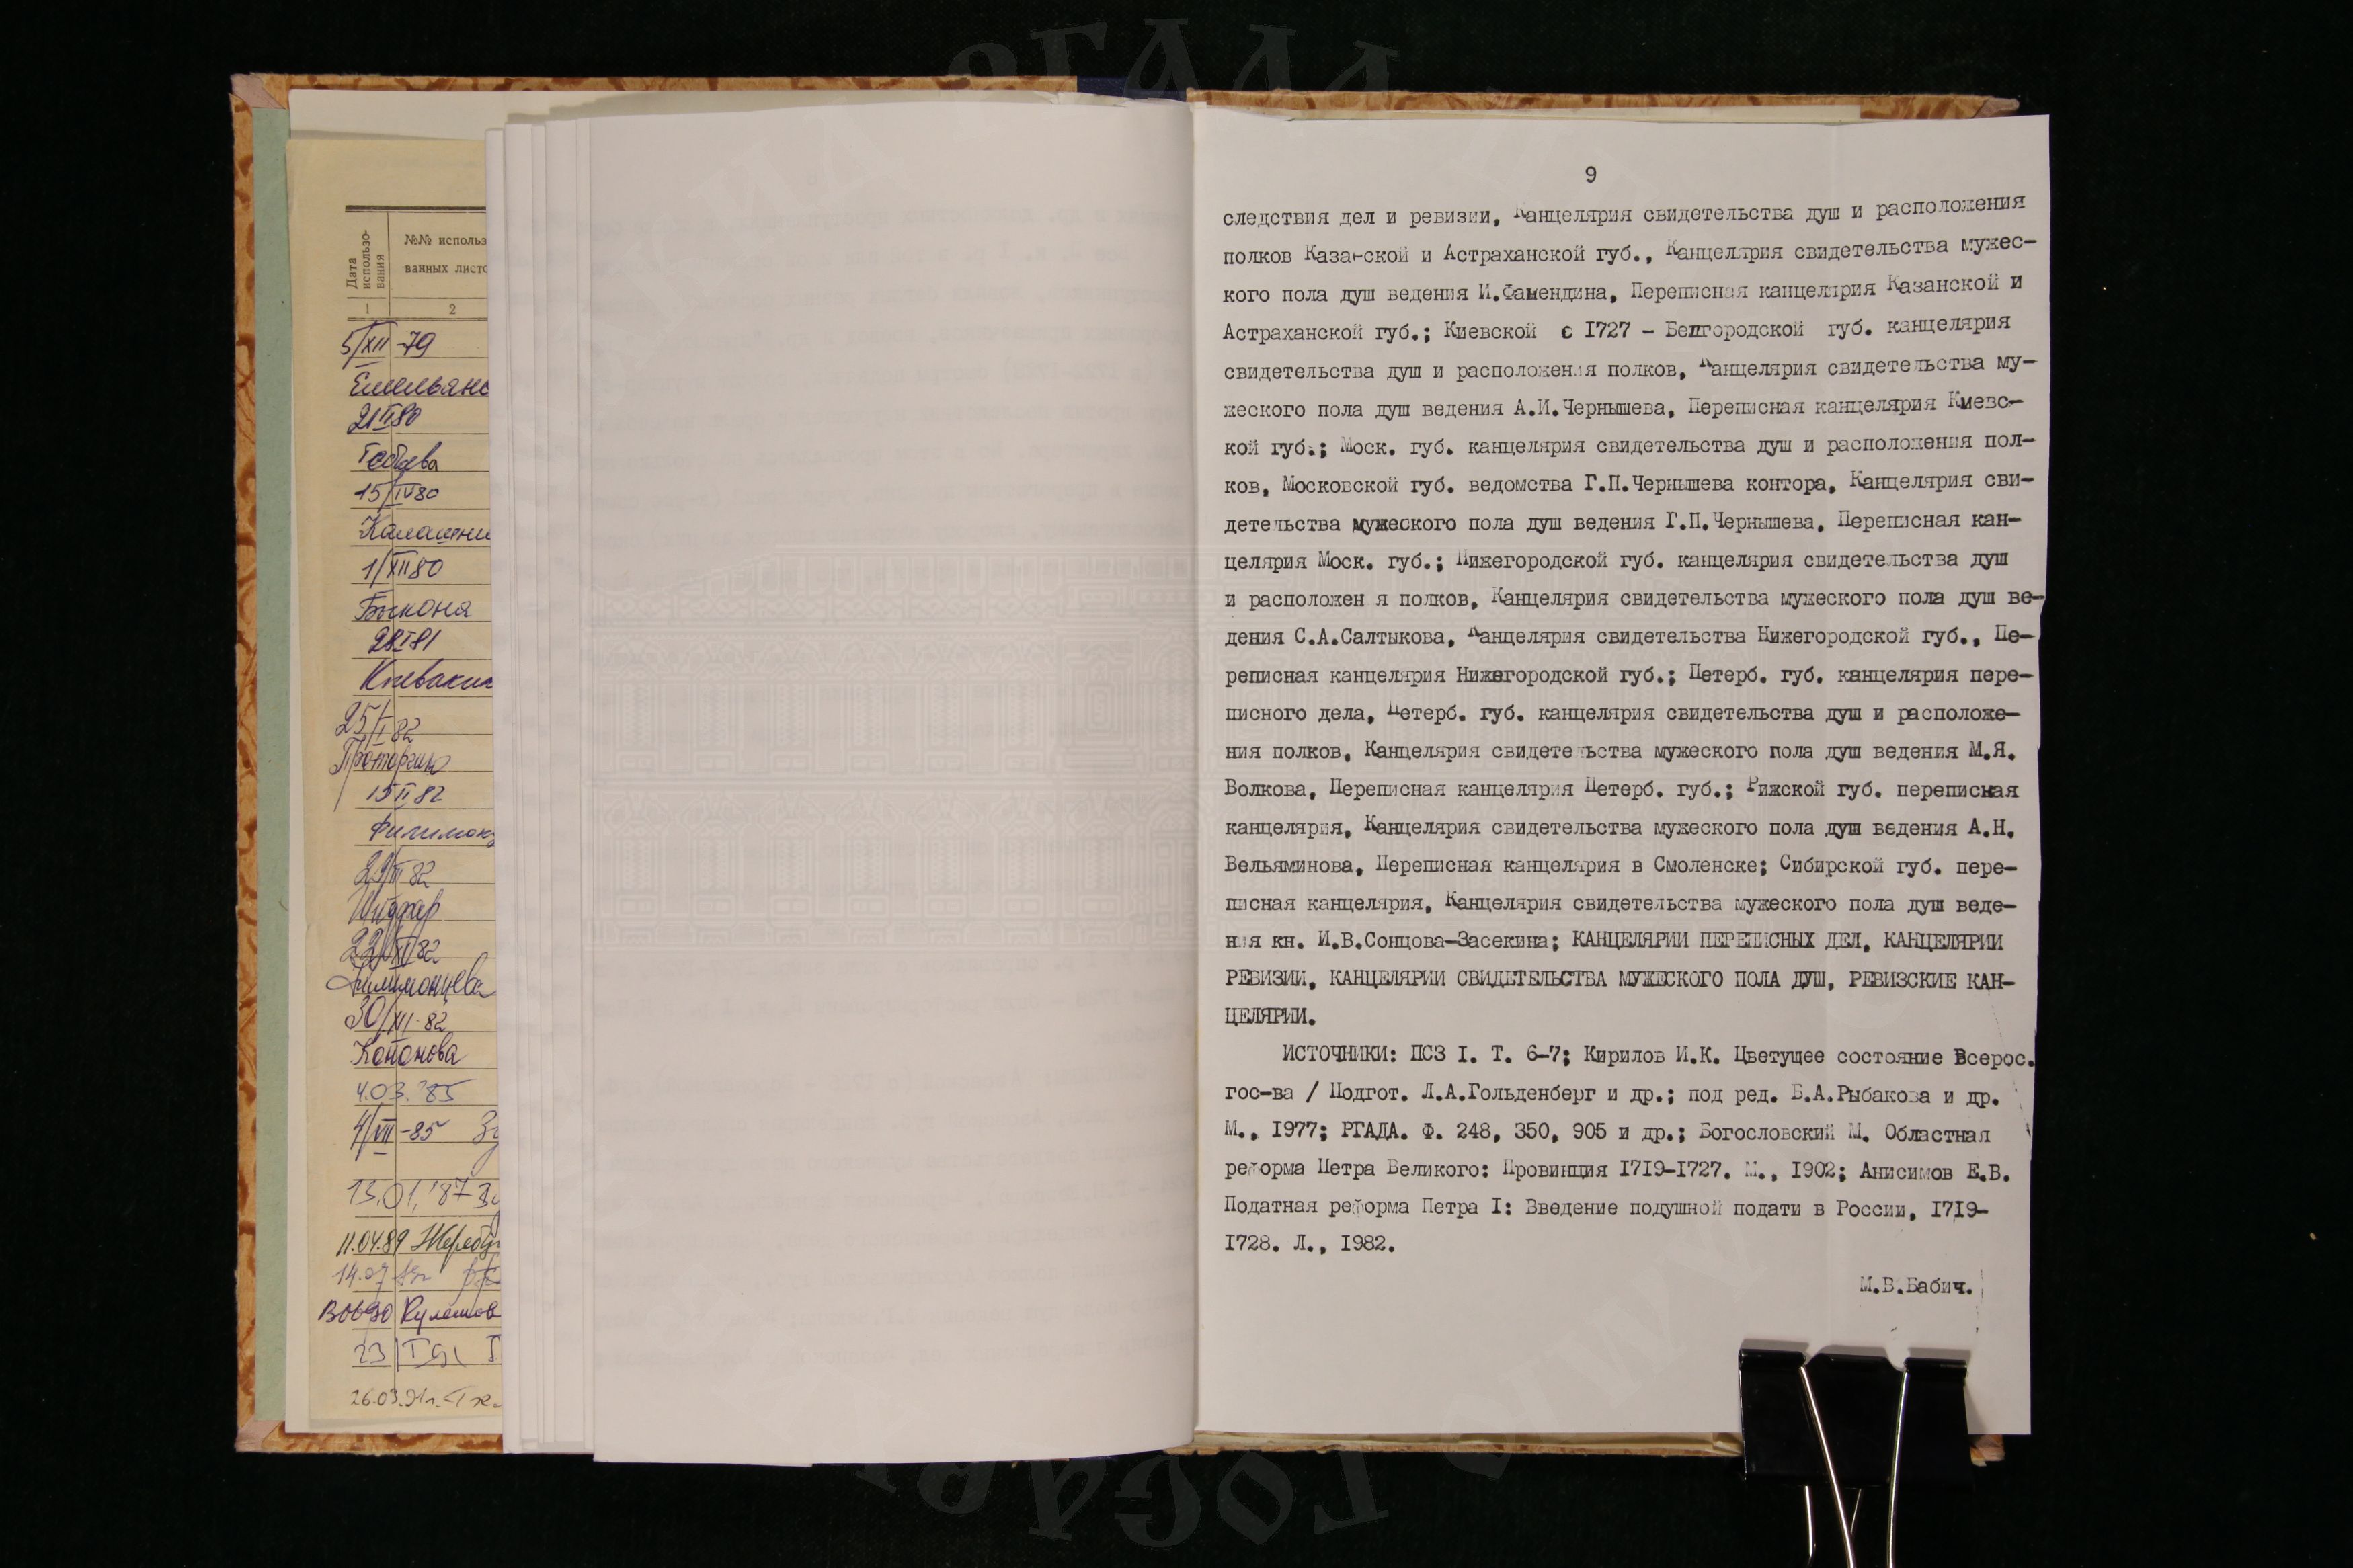 Дата
использо-
вания
№№ использ
ванных листо
1
2
5/XII-79
Емельяно
21 II 80
15/IV 80
1/XII 80
Быконя
28 I 81
25/I 82
15 II 82
Филимон
22/XI 82
Филимонцева
30/XII-82
Кононова
4.03.'85
4/VII-85
13.01.'87
11.04.89
14.07
Кулешов
23
26.03.91г.
9
следствия дел и ревизии, Канцелярия свидетельства душ и расположения
полков Казанской и Астраханской губ., Канцелярия свидетельства мужес-
кого пола душ ведения И.Фамендина, Переписная канцелярия Казанской и
Астраханской губ.; Киевской с 1727 - Белгородской губ. канцелярия
свидетельства душ и расположения полков, Канцелярия свидетельства му-
жеского пола душ ведения А.И.Чернышева, Переписная канцелярия Киевс-
кой губ.; Моск. губ. канцелярия свидетельства душ и расположения пол-
ков, Московской губ. ведомства Г.П.Чернышева контора, Канцелярия сви-
детельства мужеского пола душ ведения Г.П.Чернышева, Переписная кан-
целярия Моск. губ.; Нижегородской губ. канцелярия свидетельства душ
и расположен я полков, Канцелярия свидетельства мужеского пола душ ве-
дения С.А.Салтыкова, Канцелярия свидетельства Нижегородской губ., Пе-
реписная канцелярия Нижегородской губ.; Петерб. губ. канцелярия пере-
писного дела, Петерб. губ. канцелярия свидетельства душ и расположе-
ния полков, Канцелярия свидетельства мужеского пола душ ведения М.Я.
Волкова, Переписная канцелярия Петерб. губ.; Рижской губ. переписная
канцелярия, Канцелярия свидетельства мужеского пола душ ведения А.Н.
Вельяминова, Переписная канцелярия в Смоленске; Сибирской губ. пере-
писная канцелярия, Канцелярия свидетельства мужеского пола душ веде-
ния кн. И.В.Сонцова-Засекина; КАНЦЕЛЯРИИ ПЕРЕПИСНЫХ ДЕЛ, КАНЦЕЛЯРИИ
РЕВИЗИИ, КАНЦЕЛЯРИИ СВИДЕТЕЛЬСТВА МУЖЕСКОГО ПОЛА ДУШ, РЕВИЗСКИЕ КАН-
ЦЕЛЯРИИ.
ИСТОЧНИКИ: ПСЗ I. Т. 6-7; Кирилов И.К. Цветущее состояние Всерос.
гос-ва / Подгот. Л.А.Гольденберг и др.; под ред. Б.А.Рыбакова и др.
М., 1977; РГАДА. Ф. 248, 350, 905 и др.; Богословский М. Областная
реформа Петра Великого: Провинция 1719-1727. М., 1902; Анисимов Е.В.
Податная реформа Петра I: Введение подушной подати в России, 1719-
1728. Л., 1982.
М.В.Бабич.